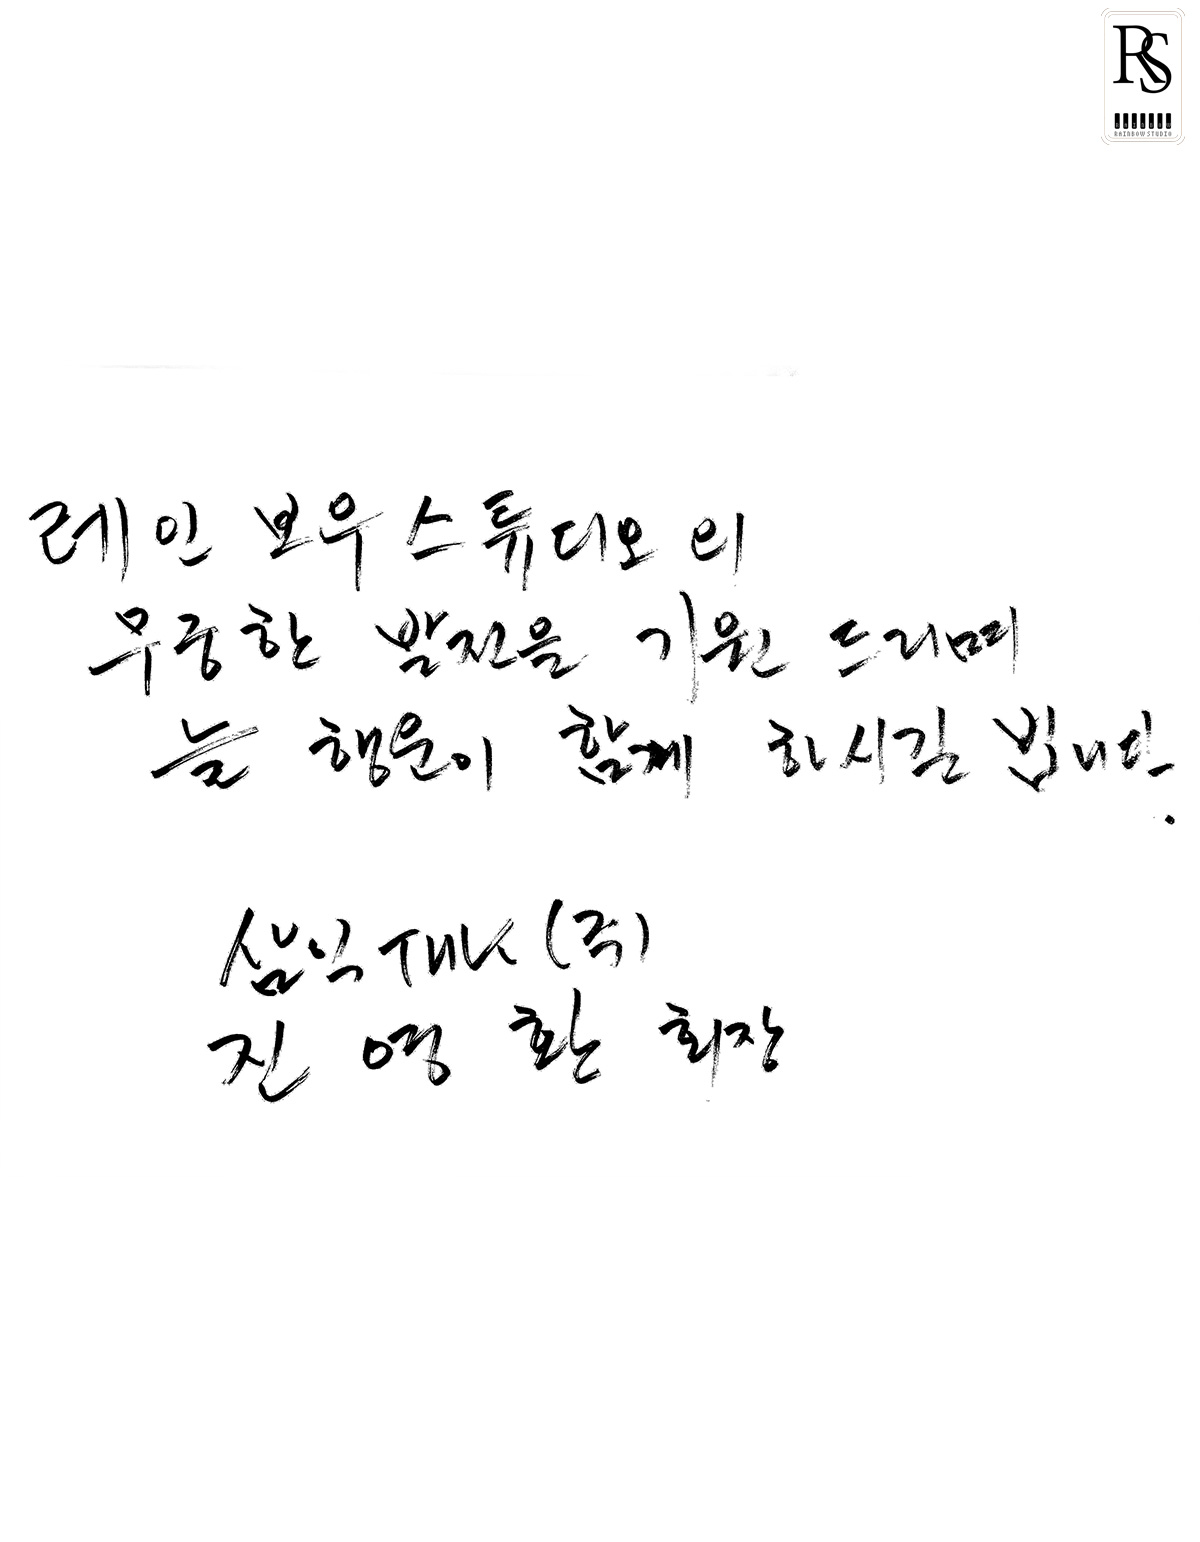 RS
RAINBOW STUDIO
레인 보우 스튜디오 의
무궁한 발전을 기원 드리며
늘 행운이 함께 하시길 빕니다.
삼익 THK (주)
진 영 환 회장